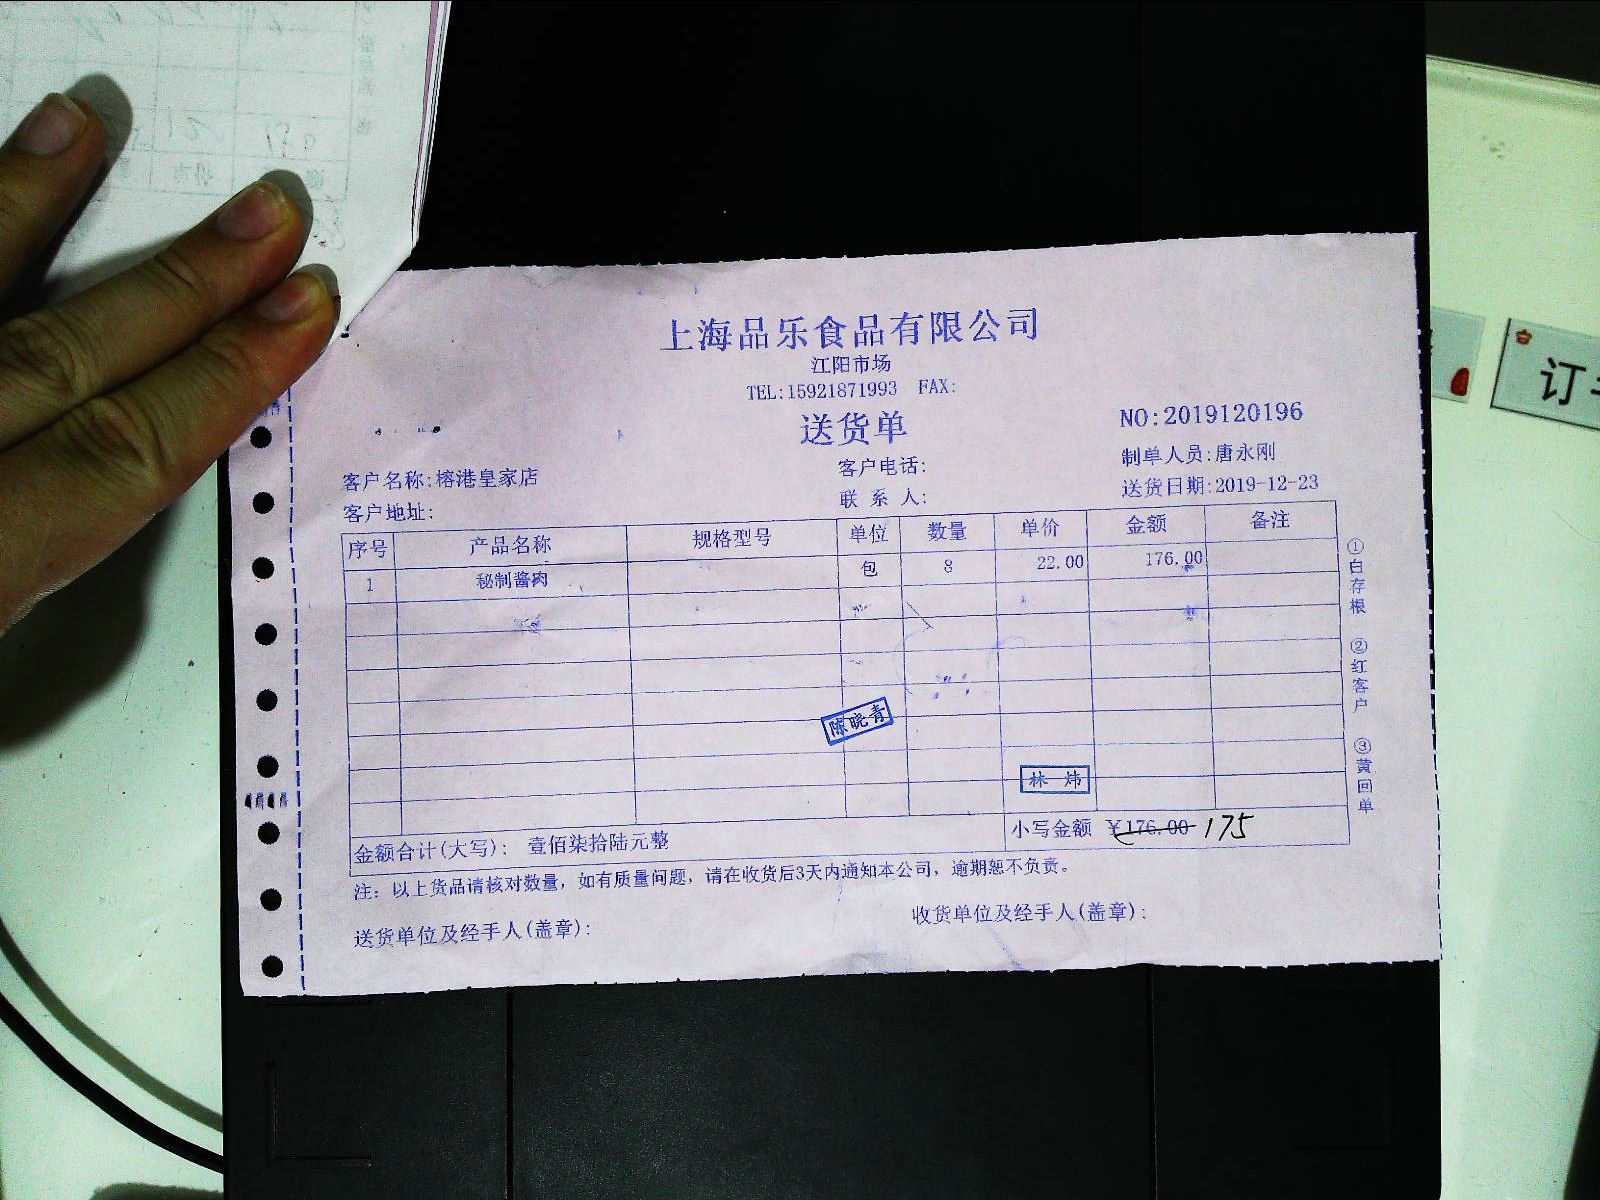 上海品乐食品有限公司
江阳市场
TEL:15921871993 FAX:
送货单
NO:2019120196
客户名称:榕港皇家店
客户电话:
制单人员:唐永刚
客户地址:
联 系 人:
送货日期:2019-12-23
序号 产品名称 规格型号 单位 数量 单价 金额 备注
1 秘制酱肉 包 8 22.00 176.00
陈晓青
林 炜
金额合计(大写): 壹佰柒拾陆元整 小写金额 ¥176.00 175
注: 以上货品请核对数量, 如有质量问题, 请在收货后3天内通知本公司, 逾期恕不负责。
送货单位及经手人(盖章):
收货单位及经手人(盖章):
①白存根 ②红客户 ③黄回单
订